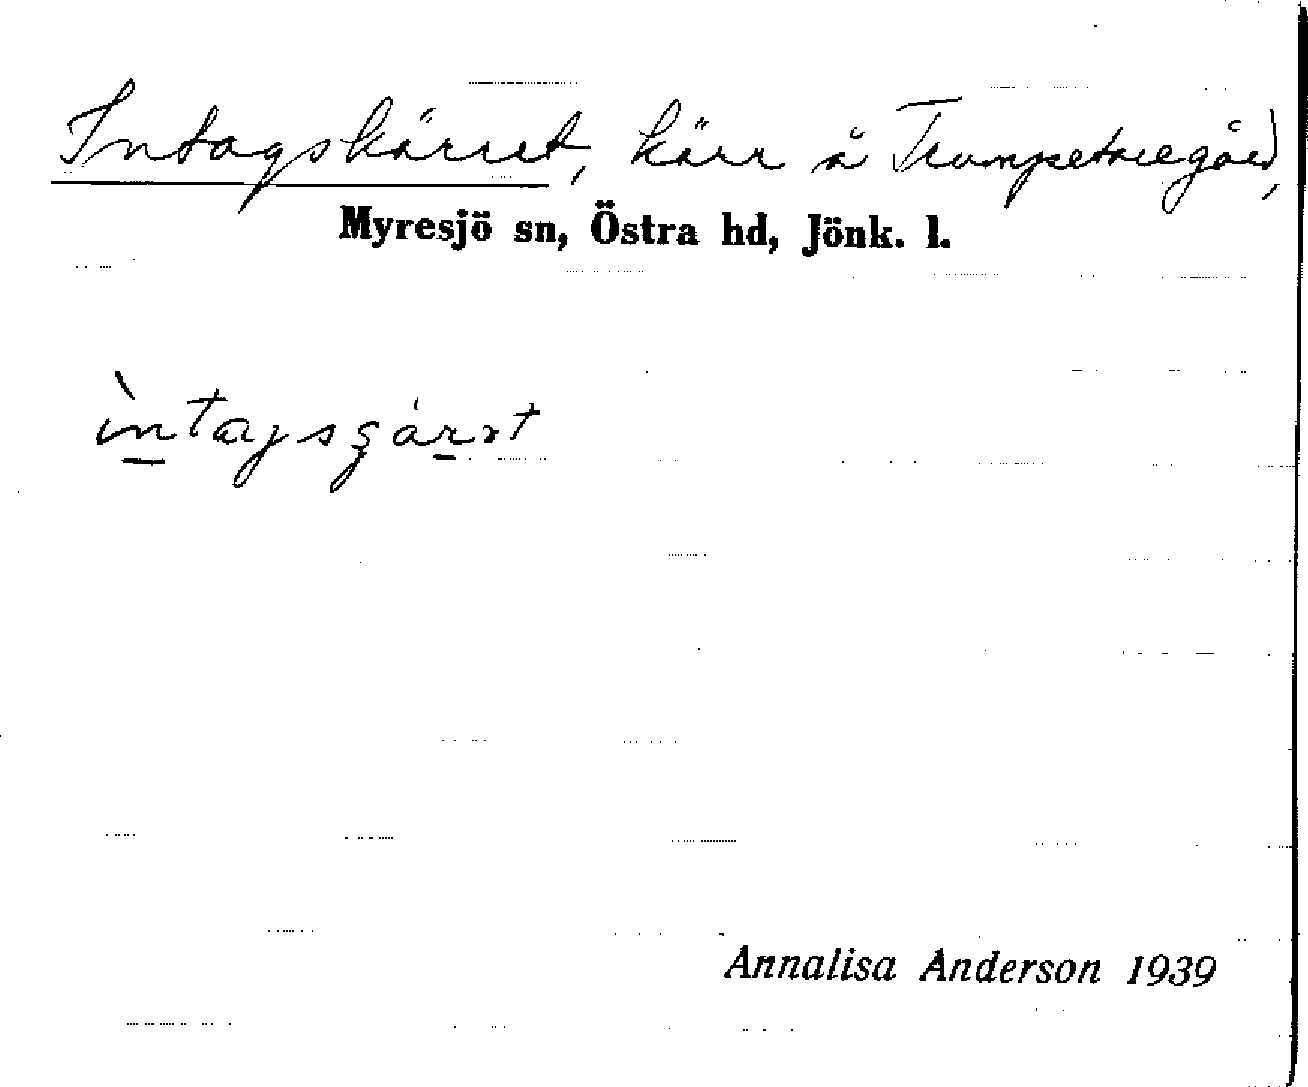 Intagskärret, kärr å Trumpetaregård,
Myresjö sn, Östra hd, Jönk. l.
Annalisa Anderson 1939